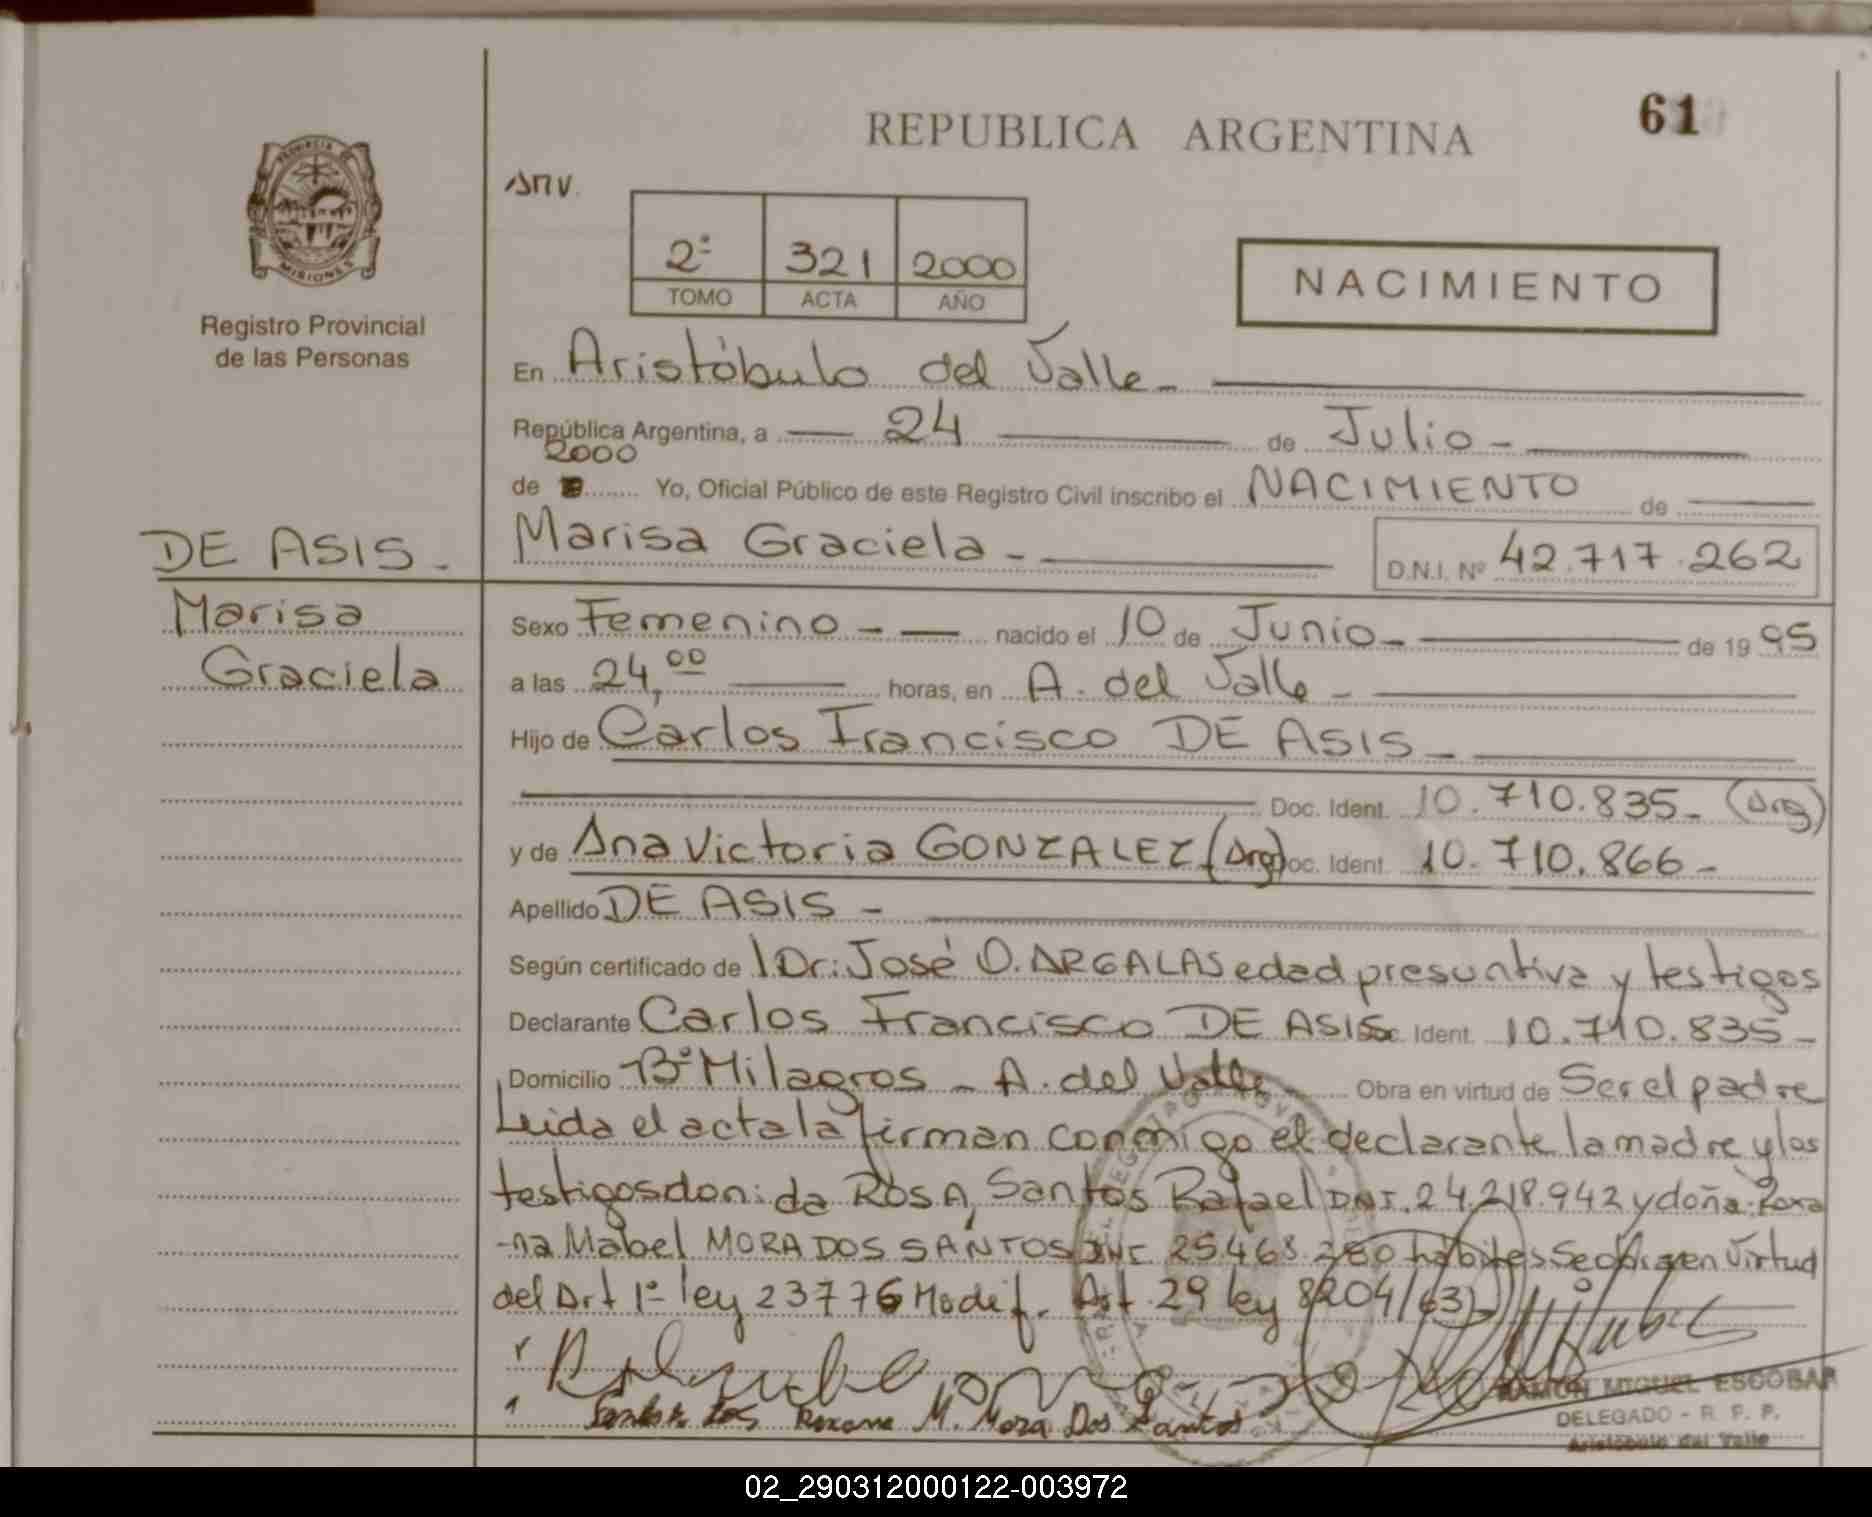 61
REPUBLICA ARGENTINA
PROVINCIA DE
MISIONES
Registro Provincial
de las Personas
2ª 321 2000
TOMO ACTA AÑO
NACIMIENTO
En Aristóbulo del Valle -
República Argentina, a 24 de Julio -
2000
de Yo, Oficial Público de este Registro Civil inscribo el NACIMIENTO de
DE ASIS -
Marisa Graciela - D.N.I. Nº 42.717.262
Marisa
Graciela
Sexo Femenino - nacido el 10 de Junio - de 1995
a las 24,00 horas, en A. del Valle -
Hijo de Carlos Francisco DE ASIS -
Doc. Ident. 10.710.835 - (Arg)
y de Ana Victoria GONZALEZ (Arg) Doc. Ident. 10.710.866 -
Apellido DE ASIS -
Según certificado de l Dr: José O. ARGALAS edad presuntiva y testigos
Declarante Carlos Francisco DE ASIS Doc. Ident. 10.710.835 -
Domicilio Bº Milagros - A. del Valle - Obra en virtud de Ser el padre
Leida el acta la firman conmigo el declarante la madre y los
testigos don: da ROSA, Santos Rafael DNI. 24.218.942 y doña: Roxa
-na Mabel MORA DOS SANTOS DNI 25.468.280 hábiles Se obra en Virtud
del Art 1º ley 23776 Modif. Art. 29 ley 8204/63)-
Roxana M. Mora Dos Santos
RAMON MIGUEL ESCOBAR
DELEGADO - R. P. P.
Aristóbulo del Valle
02_290312000122-003972